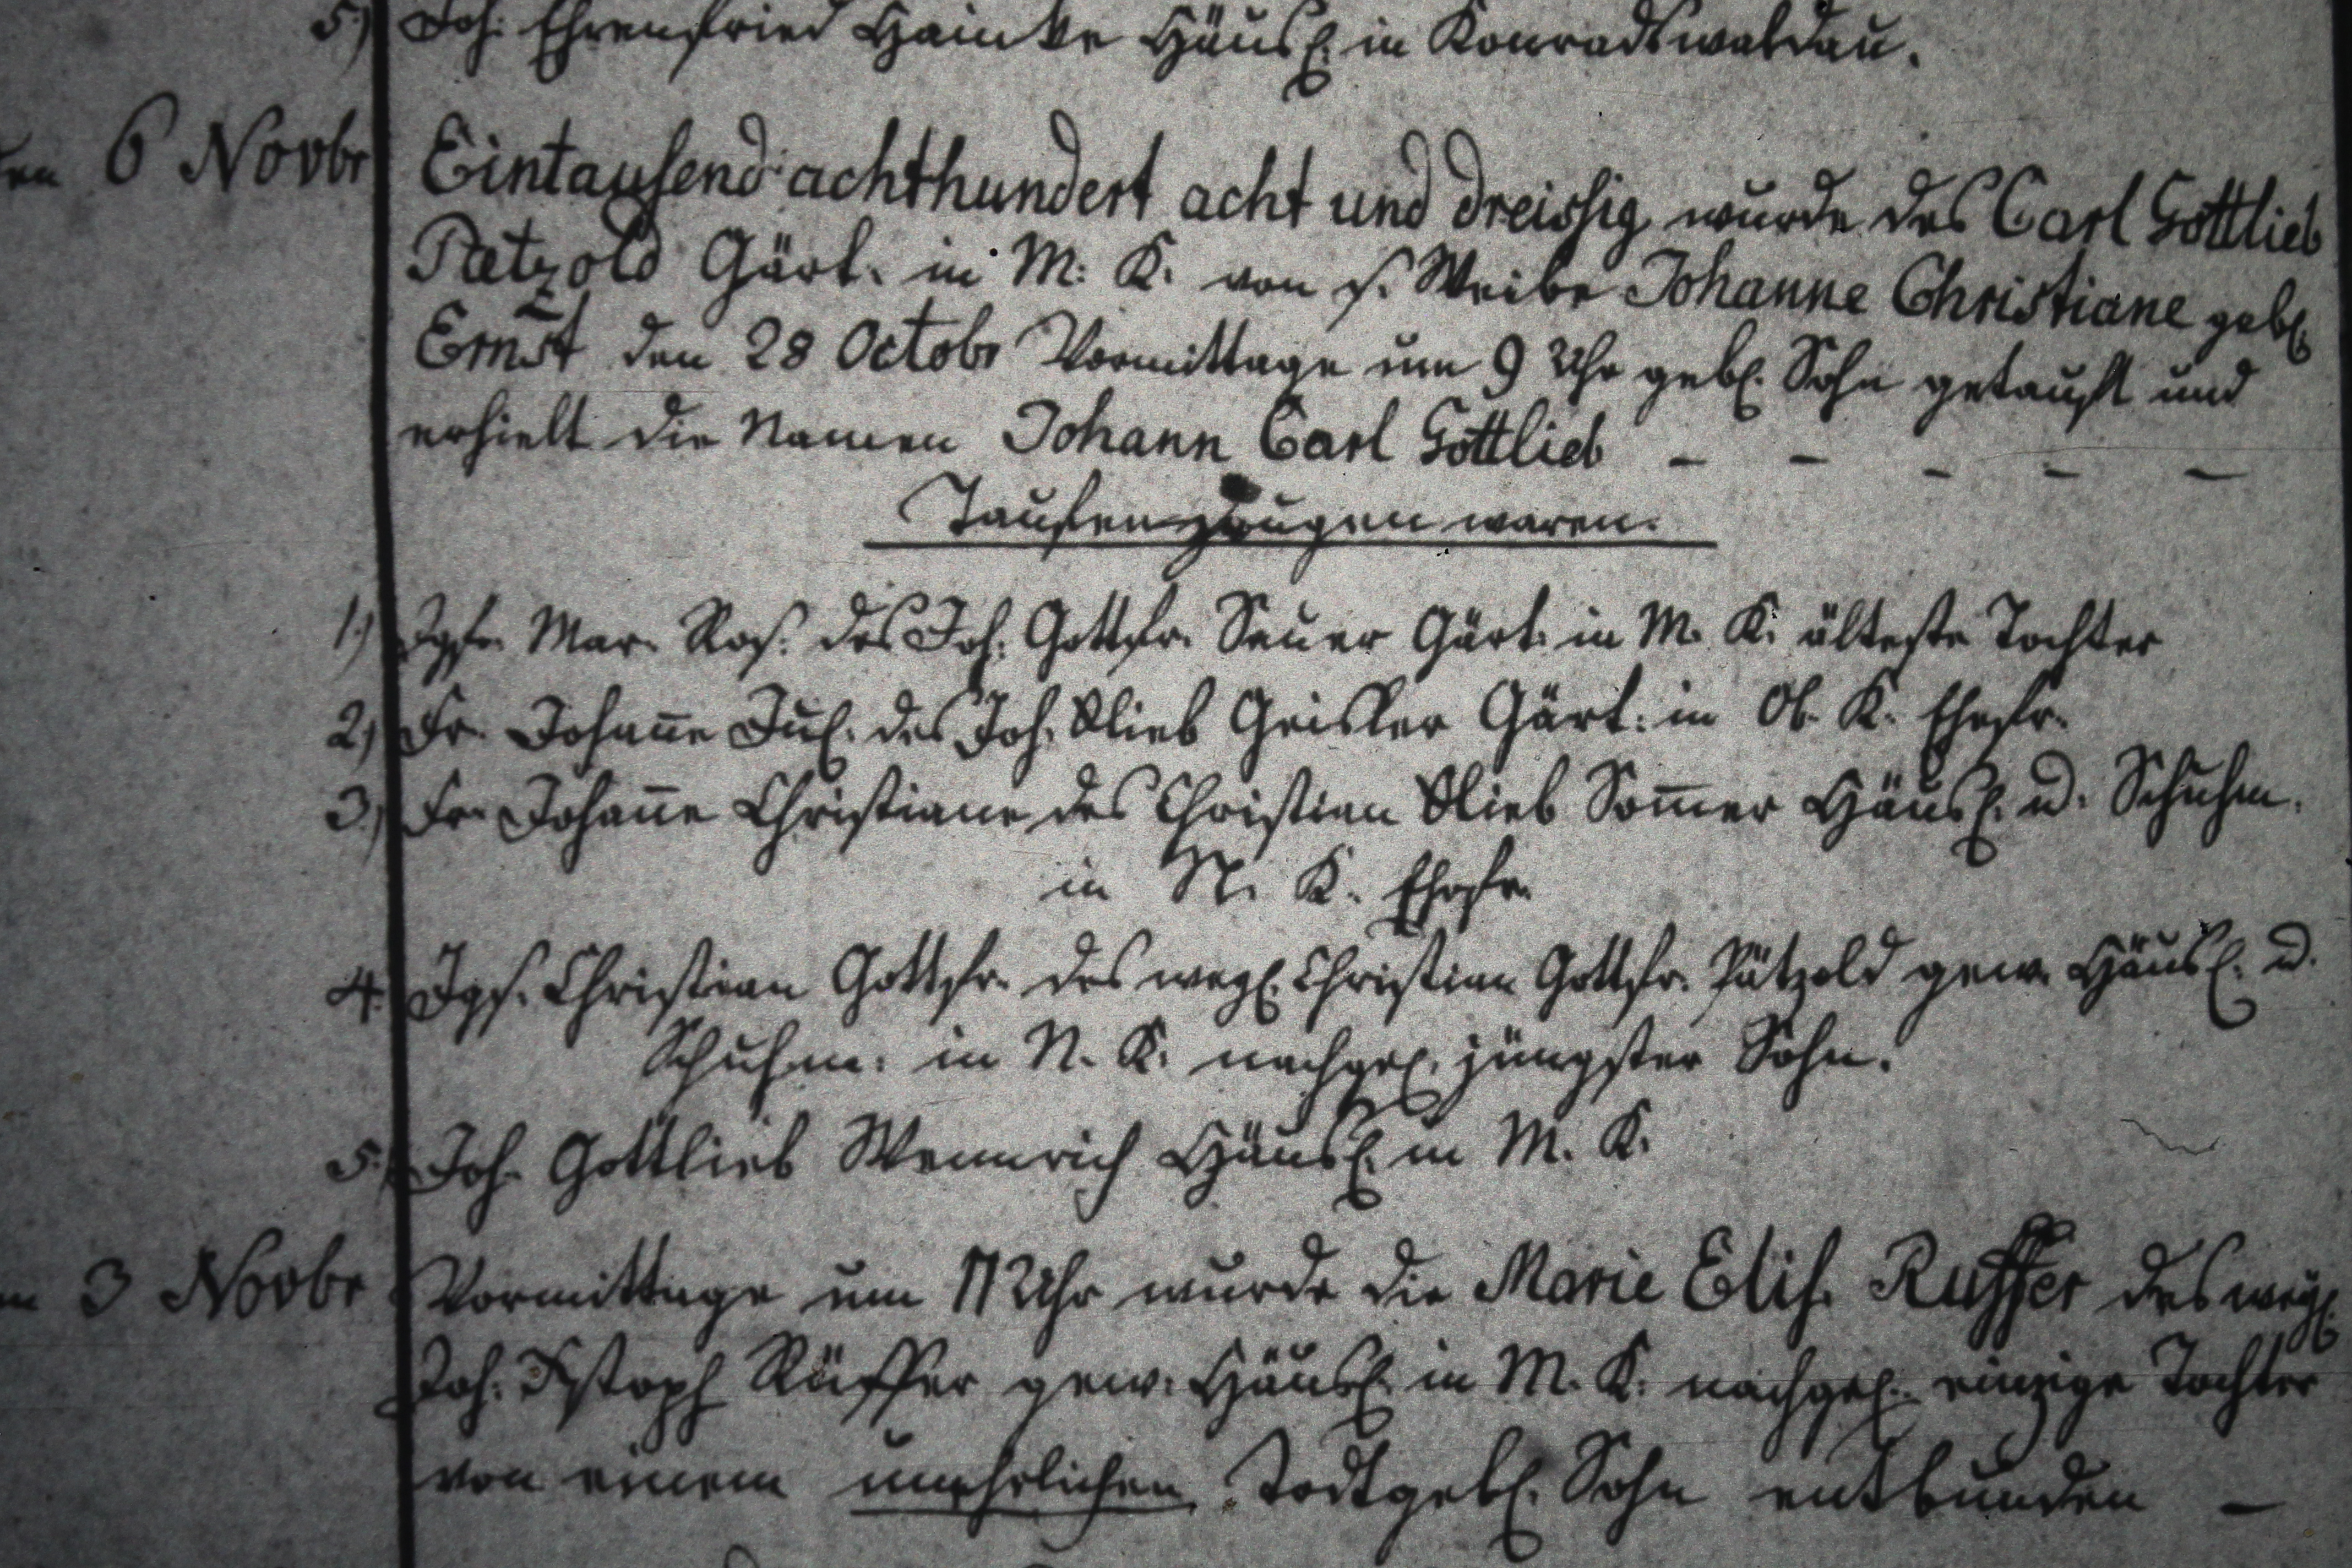 5.) Joh. Ehrenfried Hainke Häusl. in Konradswaldau.
den 6 Novbr Eintausend achthundert acht und dreissig wurde des Carl Gottlieb
Pätzold Gärt. in M. K. von s. Weibe Johanne Christiane gebl.
Ernst den 28 Octobr Vormittage um 9 Uhr gebl. Sohn getauft und
erhielt die Namen Johann Carl Gottlieb – – – – –
Taufenzeugen waren.
1.) Jgfr. Mar. Ros. des Joh. Gottfr. Seuer Gärt. in M. K. älteste Tochter
2.) Fr. Johan̄e Jul. des Joh. Glieb Geisler Gärt. in Ob. K. Ehefr.
3.) Fr. Johan̄e Christiane des Christian Glieb Som̄er Häusl. u. Schuhm.
in N. K. Ehefr.
4. Jgs. Christian Gottfr. des weyl. Christian Gottfr. Pätzold gew. Häusl. u.
Schuhm. in N. K. nachgel. jüngster Sohn.
5.) Joh. Gottlieb Wennrich Häusl. in M. K.
3 Novbr Vormittage um 11 Uhr wurde die Marie Elis. Ruffer des weyl.
Joh. Xstoph Rüffer gew. Häusl. in M. K. nachgel. einzige Tochter
von einem unehelichen Todtgebl. Sohn entbunden –